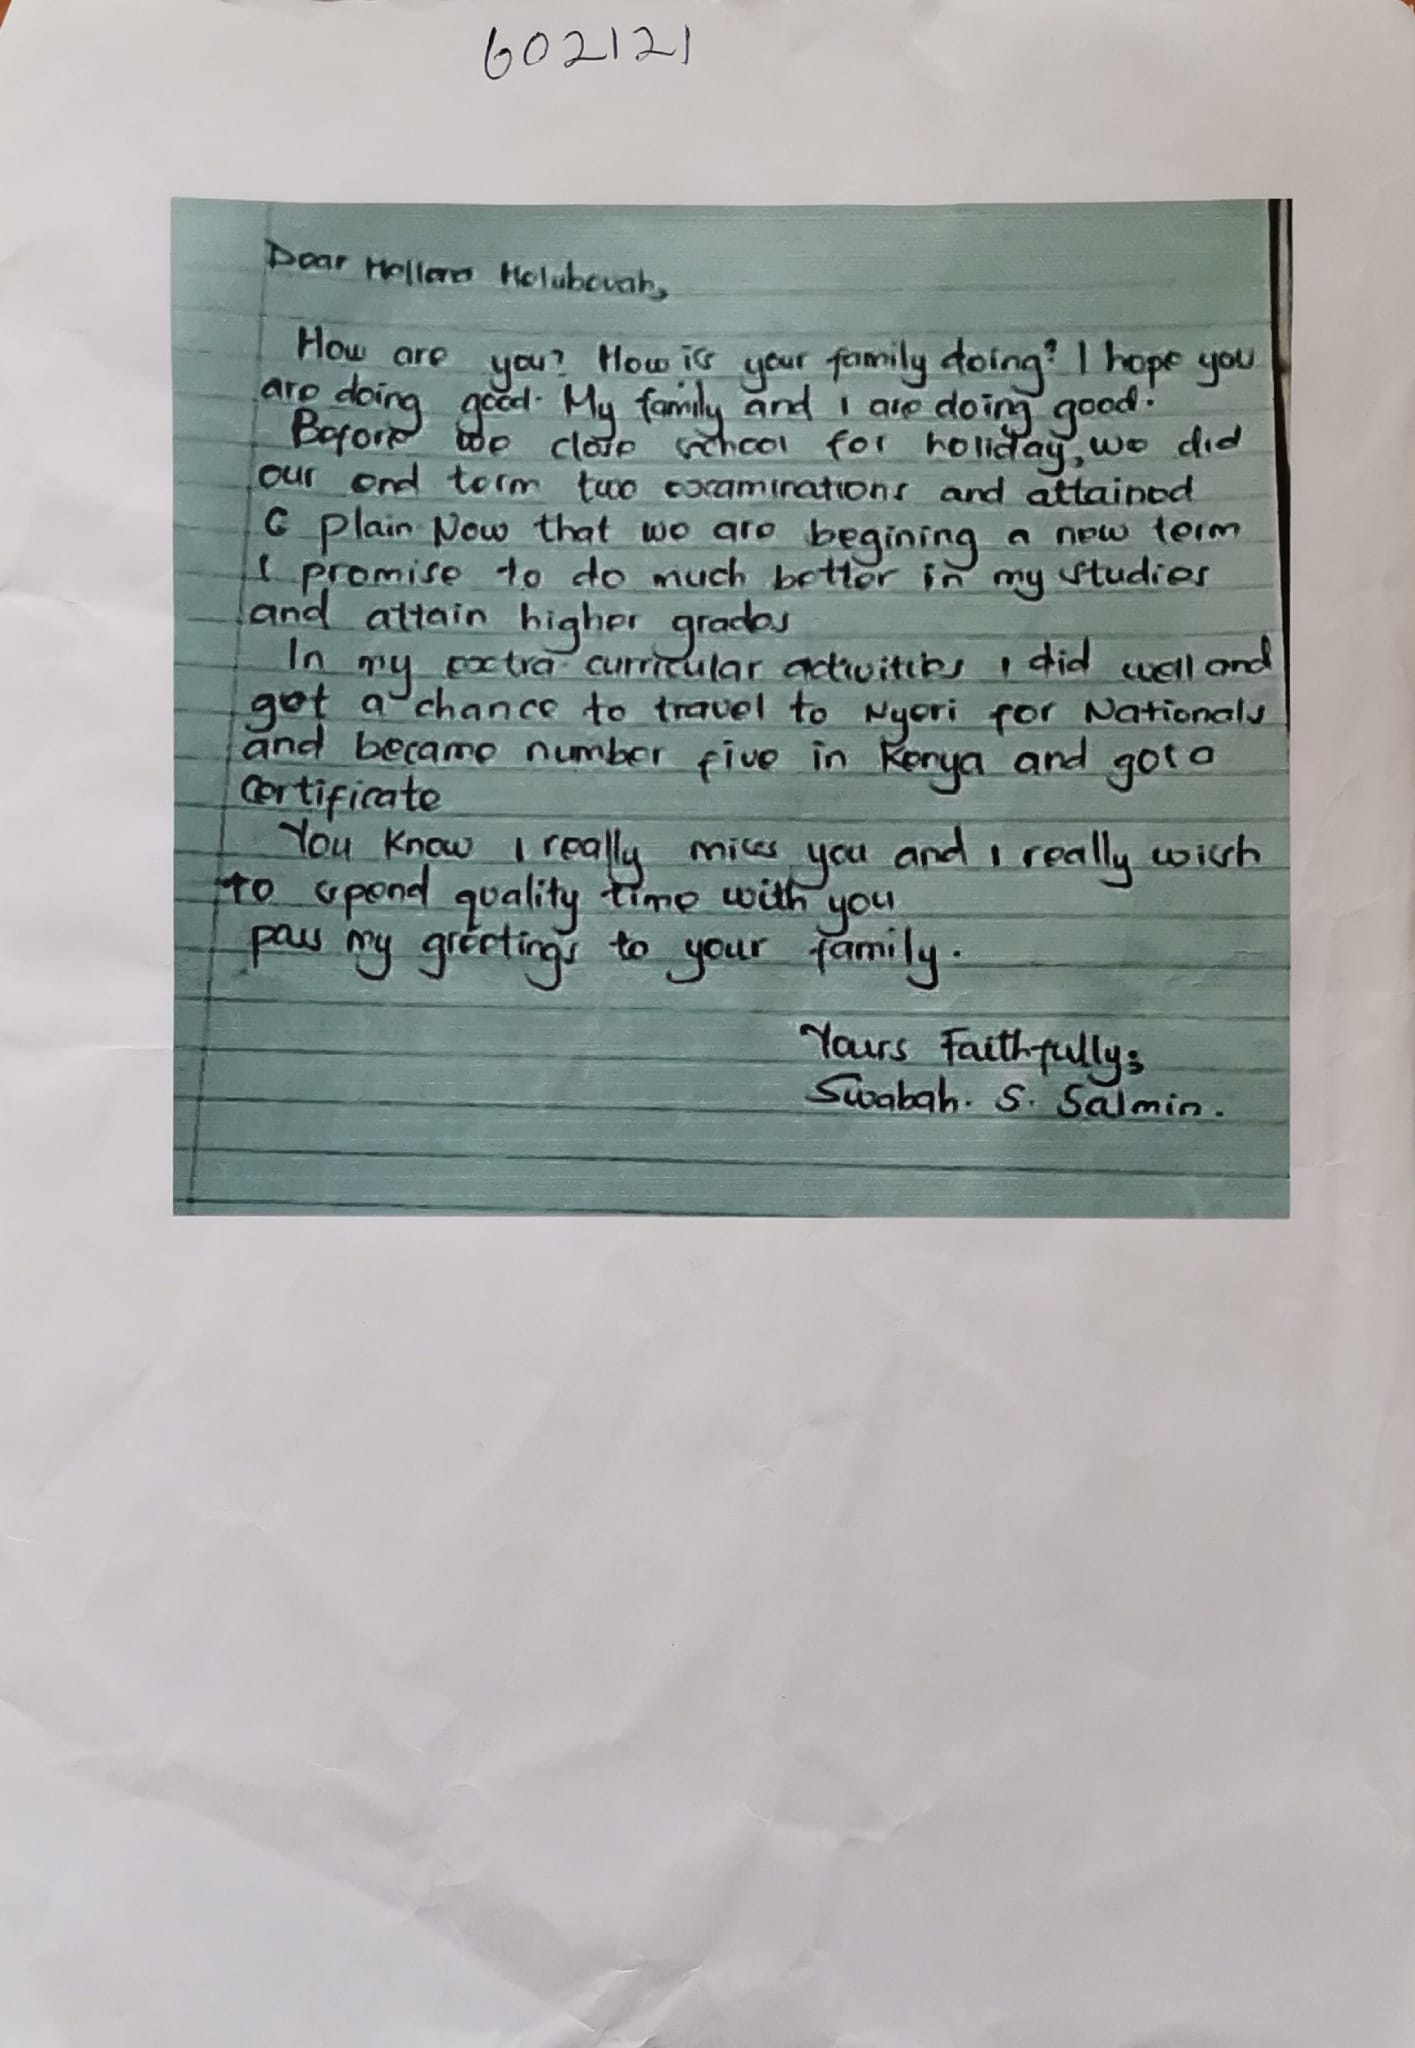 602121
Dear Hellena Holubovah,
How are you? How is your family doing? I hope you
are doing good. My family and I are doing good.
Before we close school for holiday, we did
our end term two examinations and attained
C plain Now that we are begining a new term
I promise to do much better in my studies
and attain higher grades
In my extra curricular activities I did well and
got a chance to travel to Nyeri for Nationals
and became number five in Kenya and got a
certificate
You know I really miss you and I really wish
to spend quality time with you
pass my greetings to your family.
Yours Faithfully,
Swabah. S. Salmin.